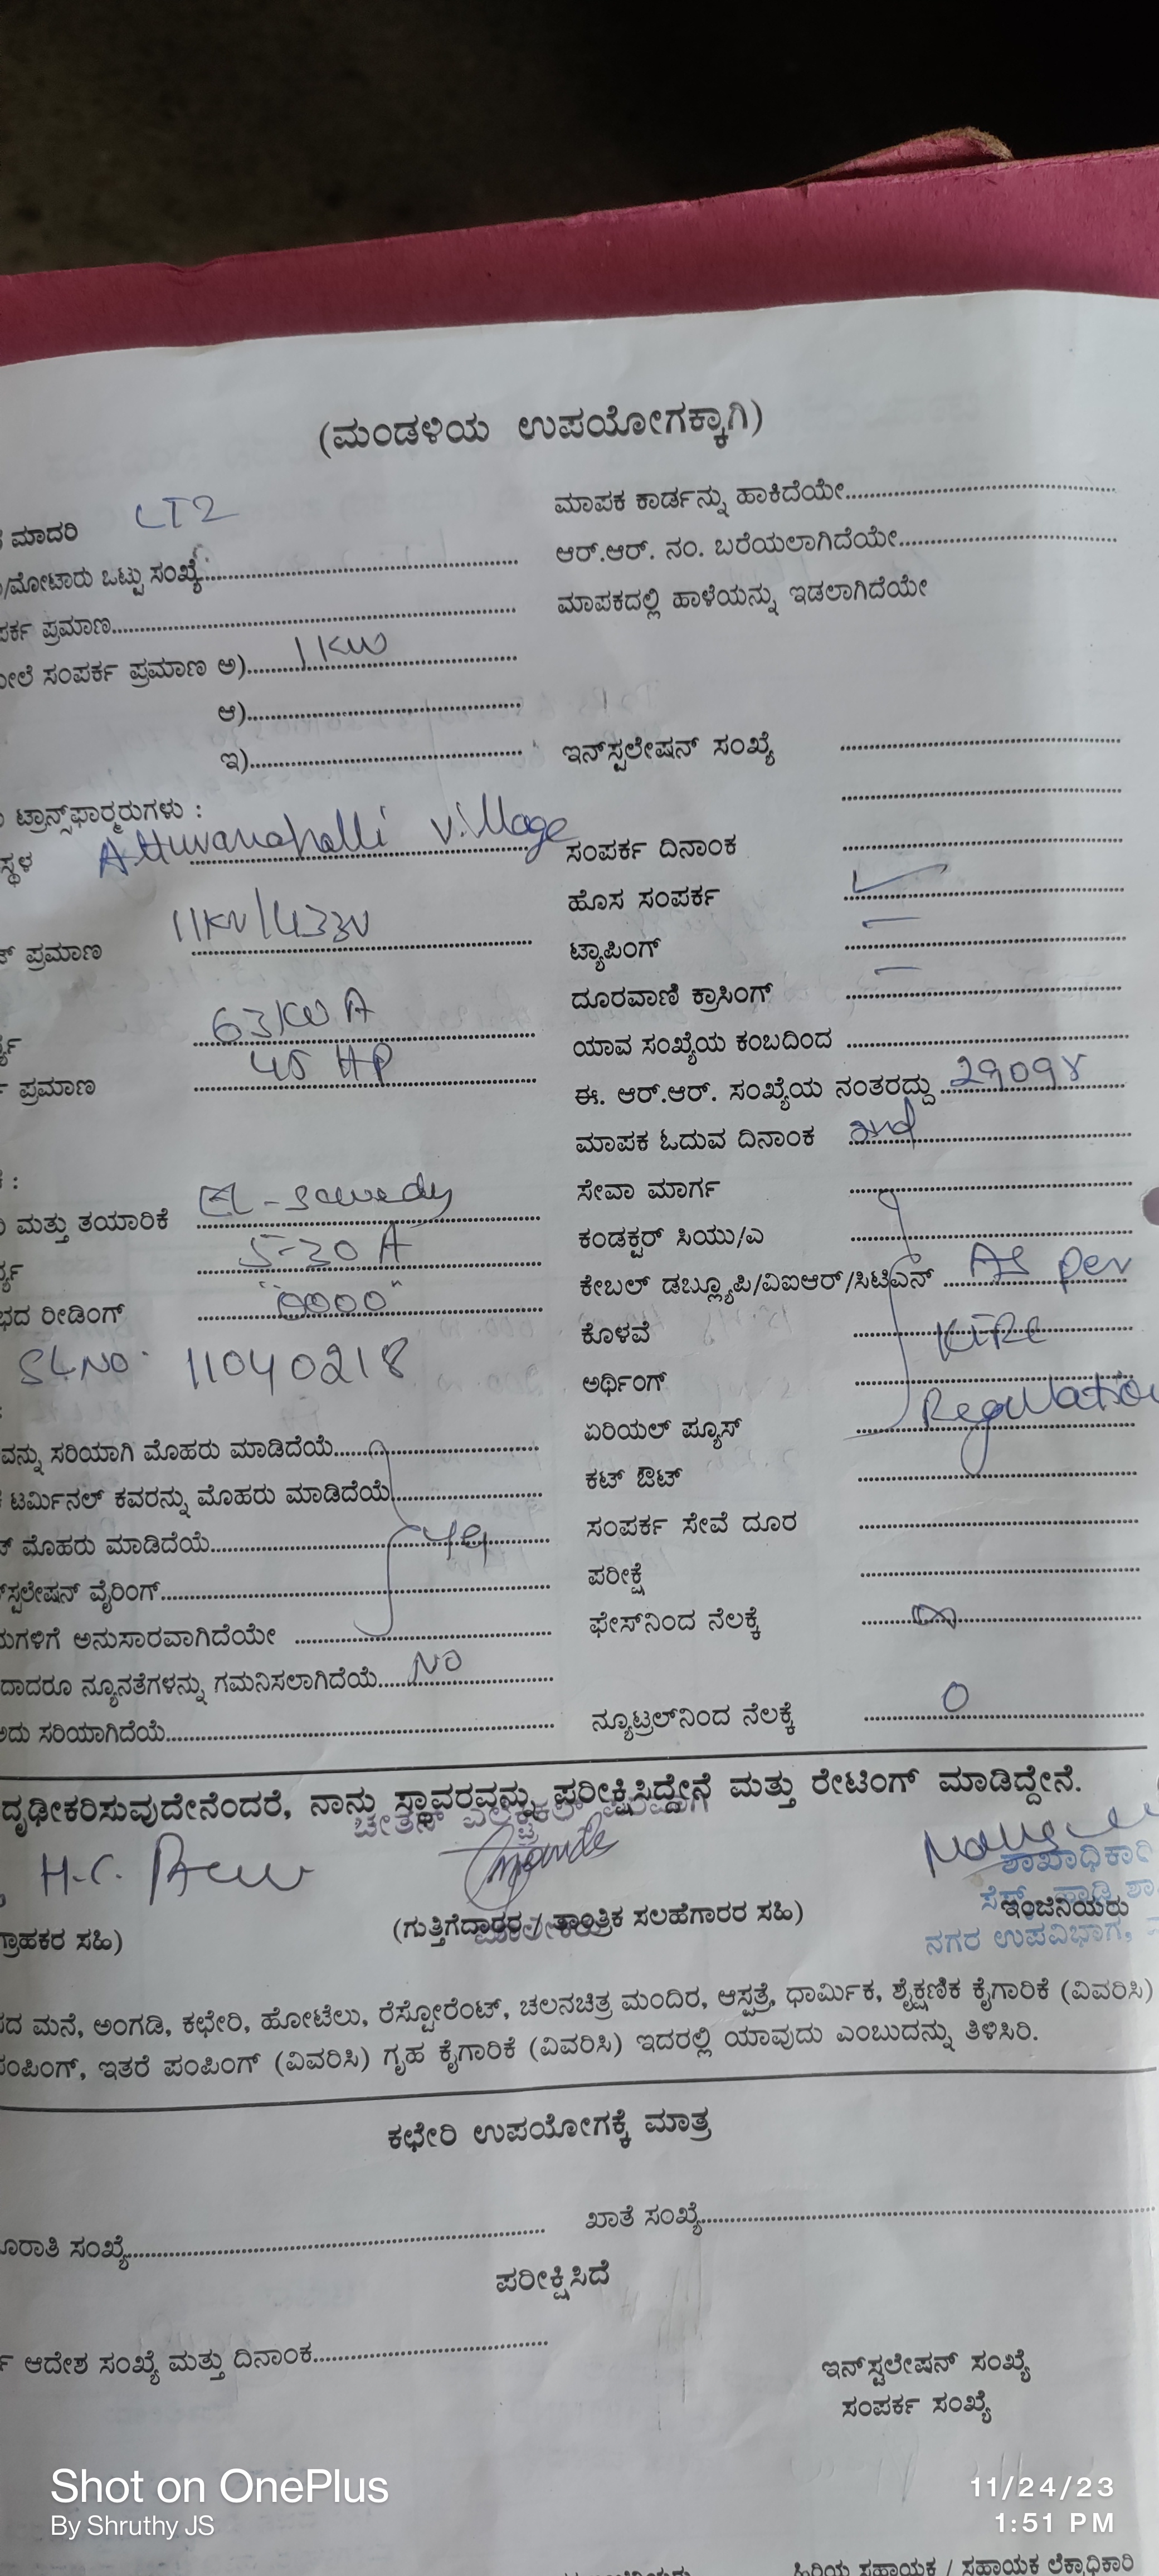 (ಮಂಡಳಿಯ ಉಪಯೋಗಕ್ಕಾಗಿ)
ಮಾದರಿ LT2
ಮಾಪಕ ಕಾರ್ಡನ್ನು ಹಾಕಿದೆಯೇ
/ಮೋಟಾರು ಒಟ್ಟು ಸಂಖ್ಯೆ
ಆರ್.ಆರ್. ನಂ. ಬರೆಯಲಾಗಿದೆಯೇ
ಪರ್ಕ ಪ್ರಮಾಣ
ಮಾಪಕದಲ್ಲಿ ಹಾಳೆಯನ್ನು ಇಡಲಾಗಿದೆಯೇ
ಸಂಪರ್ಕ ಪ್ರಮಾಣ ಅ) 1KW
ಆ)
ಇ)
ಇನ್‌ಸ್ಟಲೇಷನ್ ಸಂಖ್ಯೆ
ಟ್ರಾನ್ಸ್‌ಫಾರ್ಮರುಗಳು :
ಸ್ಥಳ Attuvanahalli Village
ಸಂಪರ್ಕ ದಿನಾಂಕ
ಹೊಸ ಸಂಪರ್ಕ ✓
ಪ್ರಮಾಣ 11KV/433V
ಟ್ಯಾಪಿಂಗ್ —
ದೂರವಾಣಿ ಕ್ರಾಸಿಂಗ್ —
63KVA
ಯಾವ ಸಂಖ್ಯೆಯ ಕಂಬದಿಂದ
ಪ್ರಮಾಣ 45 HP
ಈ. ಆರ್.ಆರ್. ಸಂಖ್ಯೆಯ ನಂತರದ್ದು 29098
ಮಾಪಕ ಓದುವ ದಿನಾಂಕ
ಮತ್ತು ತಯಾರಿಕೆ EL-sewedy
ಸೇವಾ ಮಾರ್ಗ
5-30 A
ಕಂಡಕ್ಟರ್ ಸಿಯು/ಎ
ರೀಡಿಂಗ್ "0000"
ಕೇಬಲ್ ಡಬ್ಲ್ಯೂಪಿ/ವಿಐಆರ್/ಸಿಟಿಎನ್ As per
SLNO. 11040218
ಕೊಳವೆ KERC
ಅರ್ಥಿಂಗ್
ಏರಿಯಲ್ ಪ್ಯೂಸ್ Regulation
ವನ್ನು ಸರಿಯಾಗಿ ಮೊಹರು ಮಾಡಿದೆಯೆ
ಕಟ್ ಔಟ್
ಟರ್ಮಿನಲ್ ಕವರನ್ನು ಮೊಹರು ಮಾಡಿದೆಯೆ
ಸಂಪರ್ಕ ಸೇವೆ ದೂರ
ಮೊಹರು ಮಾಡಿದೆಯೆ
ಪರೀಕ್ಷೆ
ಸ್ಟಲೇಷನ್ ವೈರಿಂಗ್
ಫೇಸ್‌ನಿಂದ ನೆಲಕ್ಕೆ ∞
ಗಳಿಗೆ ಅನುಸಾರವಾಗಿದೆಯೇ
ದಾದರೂ ನ್ಯೂನತೆಗಳನ್ನು ಗಮನಿಸಲಾಗಿದೆಯೆ NO
ನ್ಯೂಟ್ರಲ್‌ನಿಂದ ನೆಲಕ್ಕೆ 0
ಅದು ಸರಿಯಾಗಿದೆಯೆ
ದೃಢೀಕರಿಸುವುದೇನೆಂದರೆ, ನಾನು ಸ್ಥಾವರವನ್ನು ಪರೀಕ್ಷಿಸಿದ್ದೇನೆ ಮತ್ತು ರೇಟಿಂಗ್ ಮಾಡಿದ್ದೇನೆ.
H.C.
ಶಾಖಾಧಿಕಾರಿ
ಗ್ರಾಹಕರ ಸಹಿ)
(ಗುತ್ತಿಗೆದಾರರ / ತಾಂತ್ರಿಕ ಸಲಹೆಗಾರರ ಸಹಿ)
ಇಂಜಿನಿಯರು
ನಗರ ಉಪವಿಭಾಗ,
ಮನೆ, ಅಂಗಡಿ, ಕಛೇರಿ, ಹೋಟೆಲು, ರೆಸ್ಟೋರೆಂಟ್, ಚಲನಚಿತ್ರ ಮಂದಿರ, ಆಸ್ಪತ್ರೆ, ಧಾರ್ಮಿಕ, ಶೈಕ್ಷಣಿಕ ಕೈಗಾರಿಕೆ (ವಿವರಿಸಿ)
ಪಂಪಿಂಗ್, ಇತರೆ ಪಂಪಿಂಗ್ (ವಿವರಿಸಿ) ಗೃಹ ಕೈಗಾರಿಕೆ (ವಿವರಿಸಿ) ಇದರಲ್ಲಿ ಯಾವುದು ಎಂಬುದನ್ನು ತಿಳಿಸಿರಿ.
ಕಛೇರಿ ಉಪಯೋಗಕ್ಕೆ ಮಾತ್ರ
ಸಂಖ್ಯೆ
ಖಾತೆ ಸಂಖ್ಯೆ
ಪರೀಕ್ಷಿಸಿದೆ
ಆದೇಶ ಸಂಖ್ಯೆ ಮತ್ತು ದಿನಾಂಕ
ಇನ್‌ಸ್ಟಲೇಷನ್ ಸಂಖ್ಯೆ
ಸಂಪರ್ಕ ಸಂಖ್ಯೆ
Shot on OnePlus
By Shruthy JS
11/24/23
1:51 PM
ಹಿರಿಯ ಸಹಾಯಕ / ಸಹಾಯಕ ಲೆಕ್ಕಾಧಿಕಾರಿ